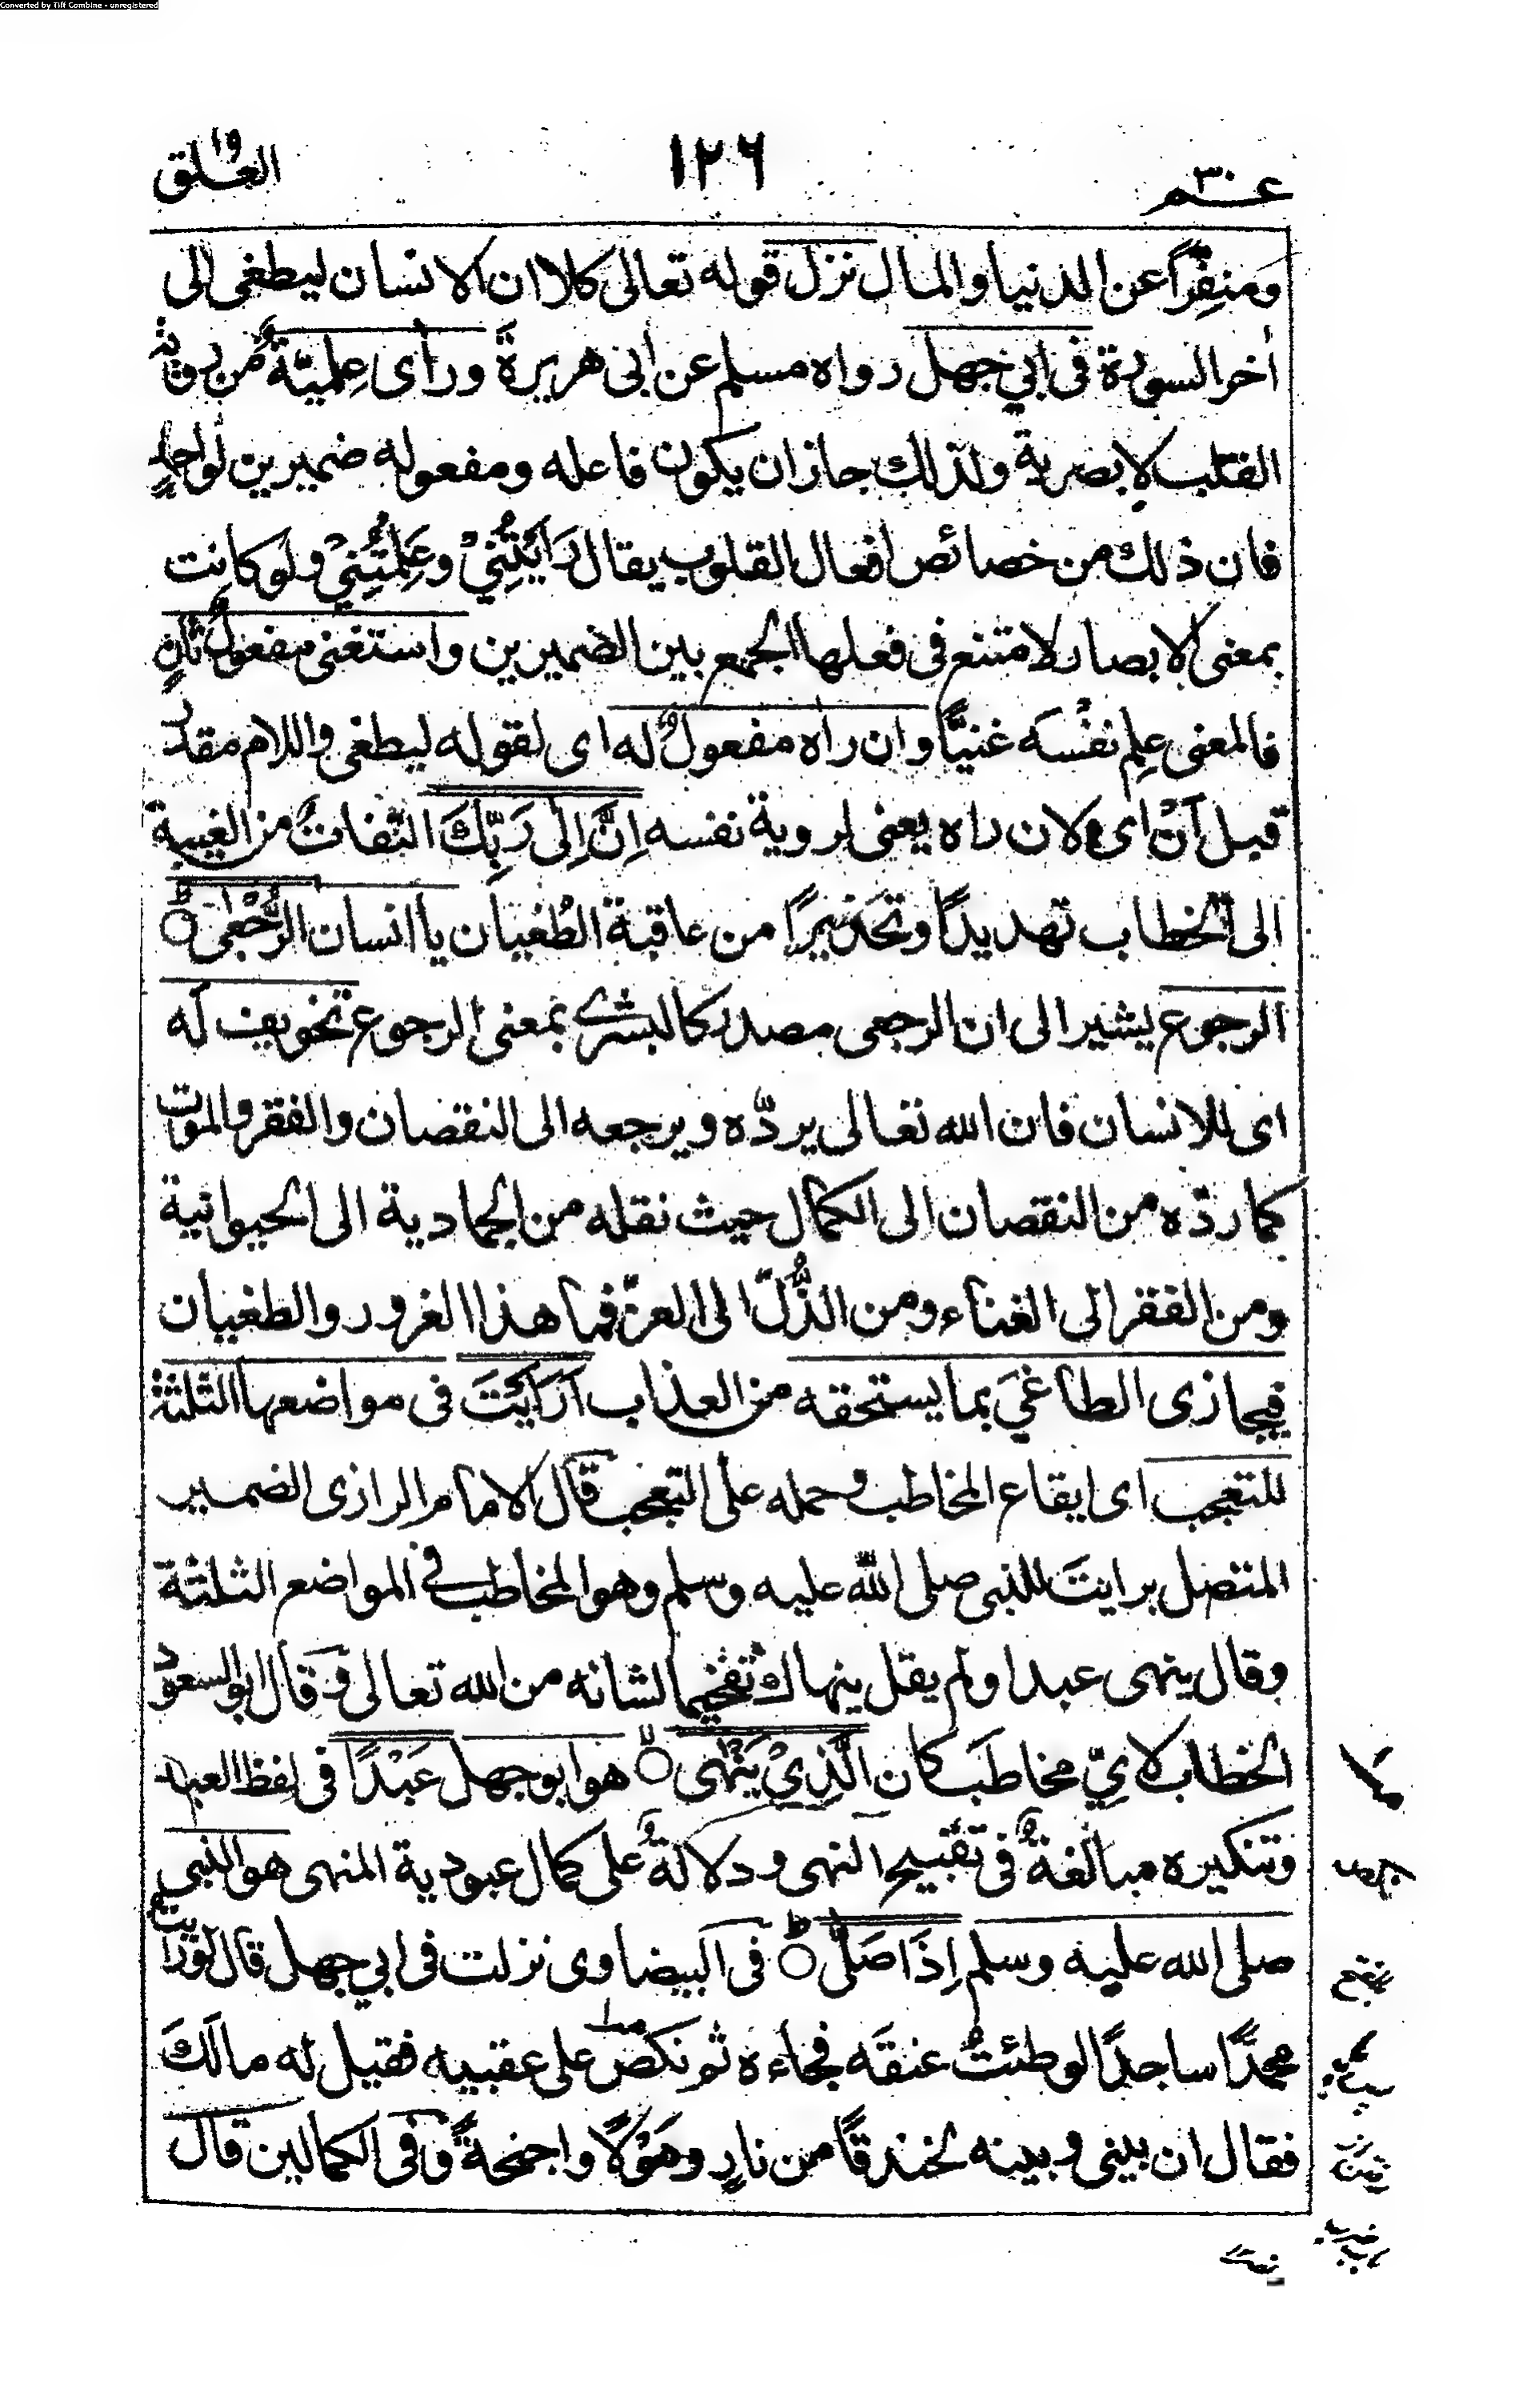 Converted by Tiff Combine - unregistered
عـم ٣٠
١٢٦
العلق
ومنفِّرًا عن الدنيا والمال نزل قوله تعالى كلا ان الانسان ليطغى الى
أخر السورة فى ابي جهل رواه مسلم عن ابى هريرة ورأى عِلميّةٌ من روية
القلب لا بصرية ولذلك جاز ان يكون فاعله ومفعوله ضميرين لواحدٍ
فان ذلك من خصائص افعال القلوب يقال رَايْتُنِيْ وعَلِمْتُنِيْ ولو كانت
بمعنى الابصار لامتنع فى فعلها الجمع بين الضميرين واستغنى مفعولٌ ثانٍ
فالمعنى علِم نفْسَه غنيًّا وان راه مفعولٌ له اى لقوله ليطغى واللام مقدر
قبل آنْ اى ولان راه يعنى لروية نفسه اِنَّ اِلٰى رَبِّكَ التفاتٌ من الغيبة
الى الخطاب تهديدًا وتحذيرًا من عاقبة الطُغيان يا انسان الرُّجْعٰى ۝ط
الرجوع يشير الى ان الرجعى مصدر كالبشرى بمعنى الرجوع تخويف له
اى للانسان فان الله تعالى يردّه ويرجعه الى النقصان والفقر والموت
كما ردّه من النقصان الى الكمال حيث نقله من الجمادية الى الحيوانية
ومن الفقر الى الغناء ومن الذُّلّ الى العزّ فما هذا الغرور والطغيان
فيجازى الطاغيَ بما يستحقه من العذاب اَرَاَيْتَ فى مواضعها الثلثة
للتعجب اى ايقاع المخاطب وحمله على التعجب قال الامام الرازى الضمير
المتصل برايتَ للنبى صلى الله عليه وسلم وهو المخاطب فى المواضع الثلثة
وقال ينهى عبدا ولم يقل ينهاك تفخيما لشانه من الله تعالى وقال ابو السعود
الخطاب لايِّ مخاطَب كان الَّذِيْ يَنْهٰى ۝لا هو ابو جهل عَبْدًا فى لفظ العبد
وتنكيره مبالغةٌ فى تقبيح النهى ودلالةٌ على كمال عبودية المنهى هو النبى
صلى الله عليه وسلم اِذَا صَلّٰى ۝ط فى البيضاوى نزلت فى ابي جهل قال لو رايت
محمدًا ساجدًا لوطئتُ عنقَه فجاءه ثم نكص على عقبيه فقيل له مالَكَ
فقال ان بينى وبينه لخندقًا من نارٍ وهَوْلًا واجنحةً وفى الكمالين قال